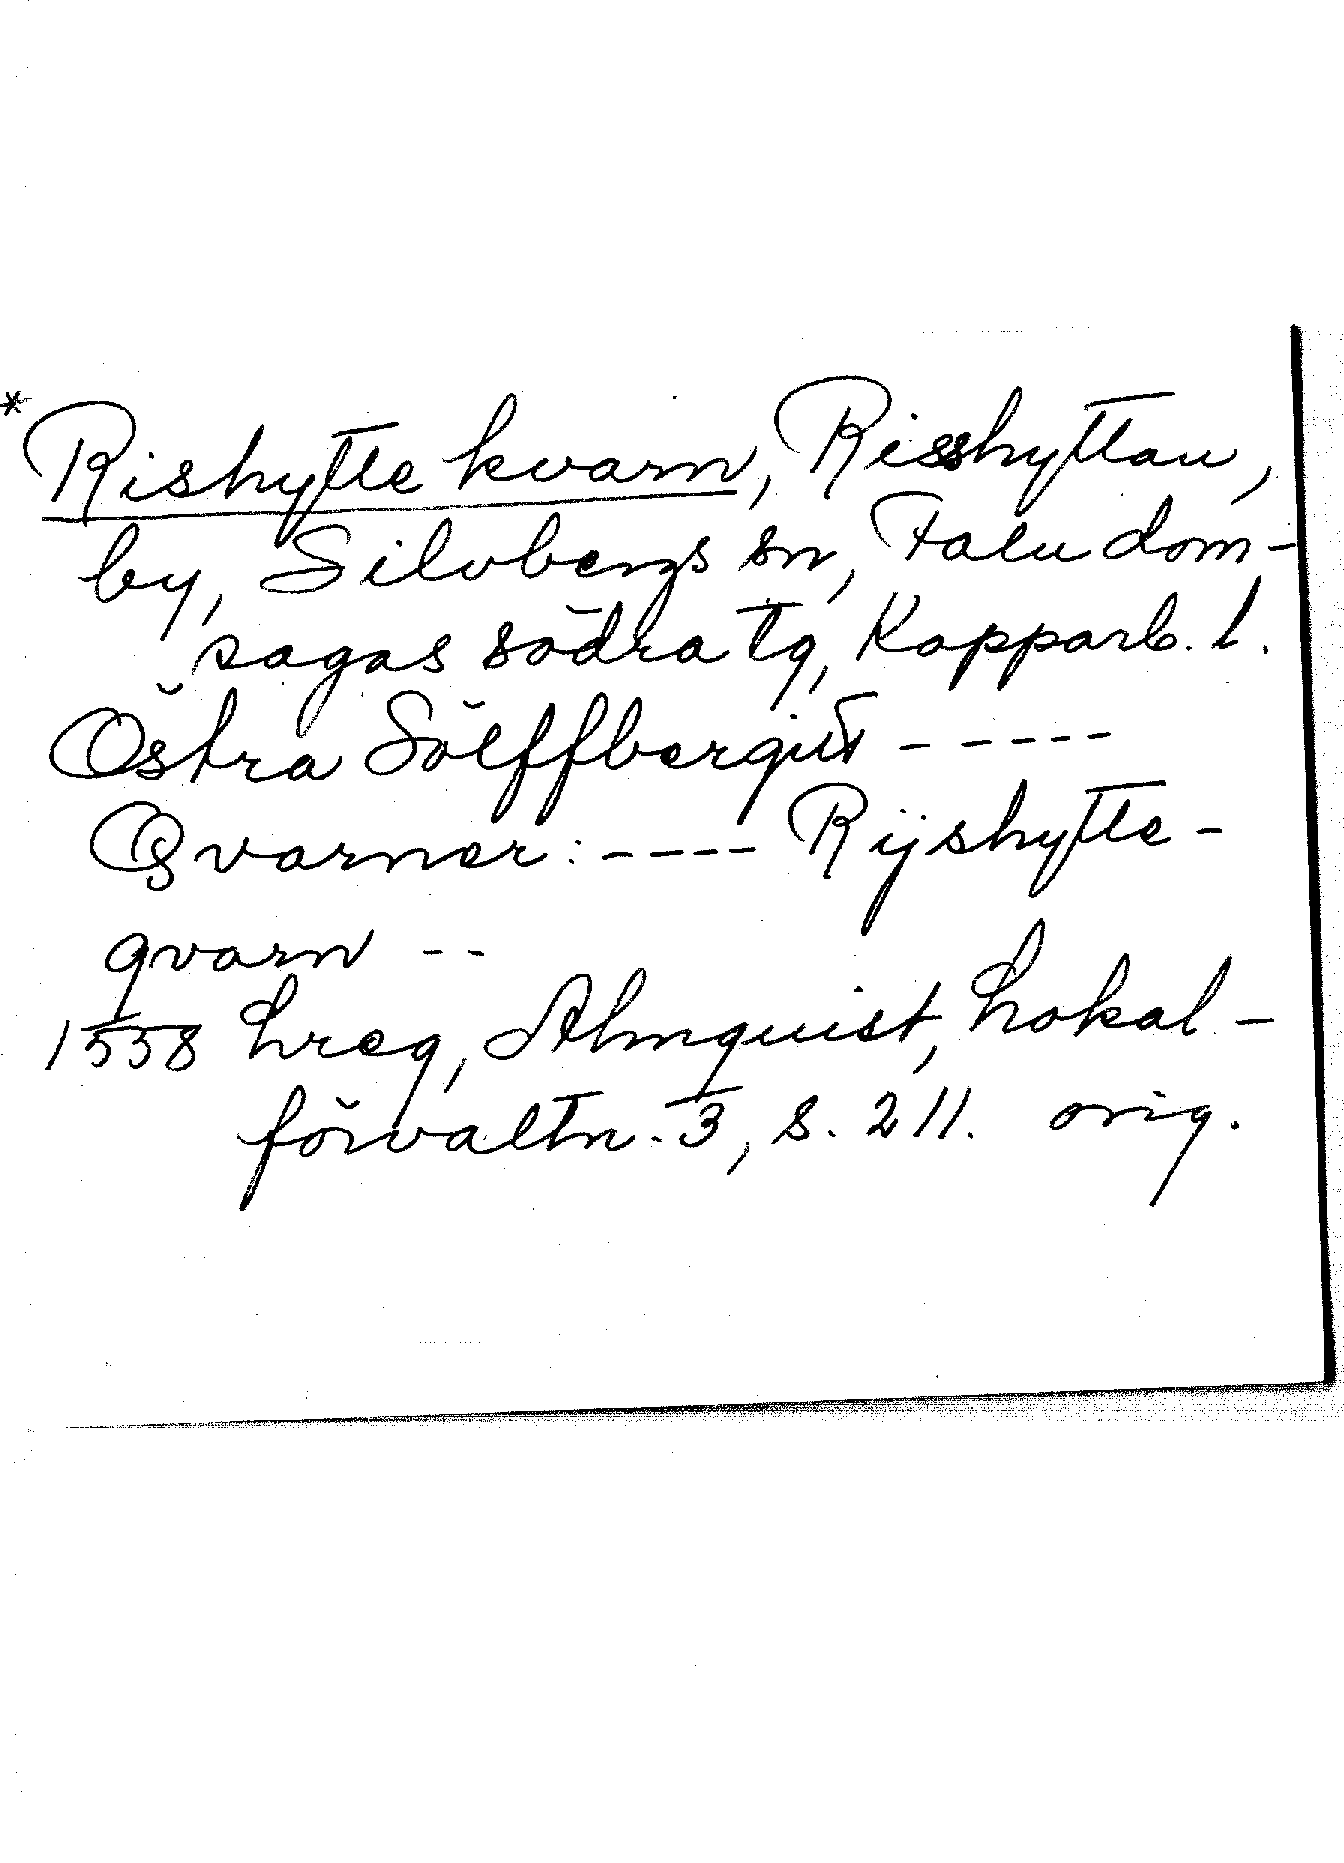 *Rishytte kvarn, Risshyttan,
by, Silvbergs sn, Falu dom-
sagas södra tg, Kopparb. l.
Östra Sölffbergiit -----
Qvarner: ---- Rijshytte-
qvarn --
1558 Lreg, Almquist, Lokal-
förvaltn. 3, s. 211. orig.